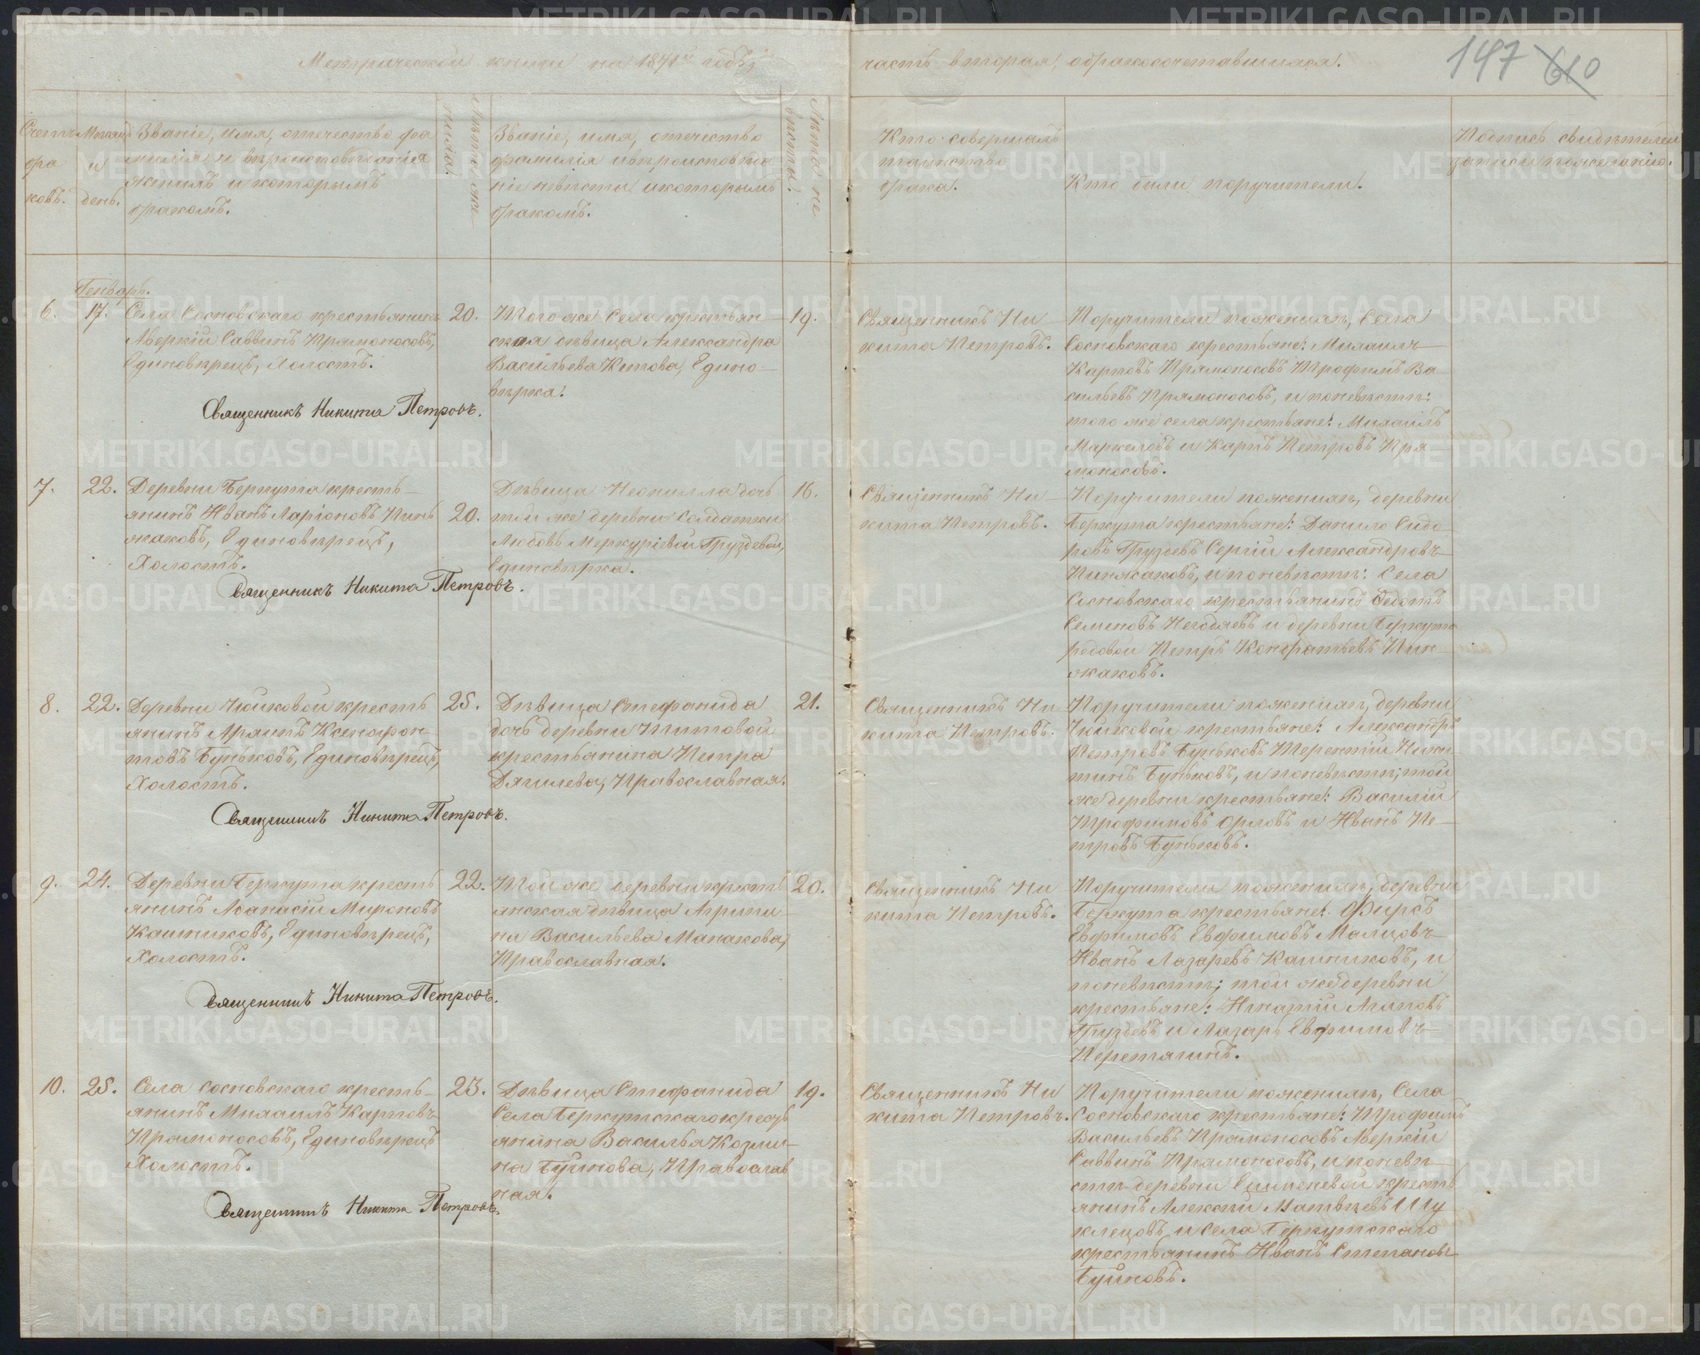 Метрической книги на 1871й годъ,
часть вторая, о бракосочетавшихся.
147 610
Счетъ бра ковъ.
Мѣсяцъ и день.
Званіе, имя, отчество фа
милія и вѣроисповѣданіе
жениха и которымъ
бракомъ.
Лѣта же
ниха.
Званіе, имя, отчество
фамилія и вѣроисповѣда
ніе невѣсты и которымъ
бракомъ.
Лѣта не
вѣсты.
Кто совершалъ
таинство
брака.
Кто были поручители.
Подпись свидѣтелей
записи по желанію.
Генварь.
6. 17.
Села Сосновскаго крестьянинъ
Аверкій Саввинъ Прямоносовъ,
Единовѣрецъ, Холостъ.
20.
Того же Села крестьян
ская дѣвица Александра
Васильева Китова, Едино-
вѣрка.
19.
Священникъ Ни
кита Петровъ.
Поручители по женихѣ, Села
Сосновскаго крестьяне: Михаилъ
Карповъ Прямоносовъ Трофимъ Ва
сильевъ Прямоносовъ, и по невѣстѣ:
того же села крестьяне: Михаилъ
Маркеловъ и Карпъ Петровъ Пря
моносовъ.
Священникъ Никита Петровъ.
7. 22.
Деревни Беркута кресть-
янинъ Иванъ Ларіоновъ Пин
жаковъ, Единовѣрецъ,
Холостъ.
20.
Дѣвица Неонилла дочь
той же деревни Солдатки
Любовь Меркуріевой Груздевой,
Единовѣрка.
16.
Священникъ Ни
кита Петровъ.
Поручители по женихѣ, деревни
Беркута крестьяне: Данило Сидо
ровъ Груздевъ Сергій Александровъ
Пинжаковъ, и по невѣстѣ: Села
Сосновскаго крестьянинъ Федотъ
Семеновъ Негодяевъ и деревни Беркута
рядовой Петръ Кондратьевъ Пин-
жаковъ.
Священникъ Никита Петровъ.
8. 22.
Деревни Чюйковой кресть
янинъ Ксенофон-
товъ Буньковъ, Единовѣрецъ,
Холостъ.
25.
Дѣвица Стефанида
дочь деревни Шитовой
крестьянина Петра
Дягилева, Православная.
21.
Священникъ Ни
кита Петровъ.
Поручители по женихѣ, деревни
Чюйковой крестьяне: Александръ
Петровъ Буньковъ Терентій Ники
тинъ Буньковъ, и по невѣстѣ; той
же деревни крестьяне: Василій
Трофимовъ Орловъ и Иванъ Пе-
тровъ Буньковъ.
Священникъ Никита Петровъ.
9. 24.
Деревни Беркута кресть
янинъ Афанасій Мироновъ
Кашниковъ, Единовѣрецъ,
Холостъ.
22.
Той же деревни кресть
янская дѣвица Агрипи-
на Васильева Манакова,
Православная.
20.
Священникъ Ни
кита Петровъ.
Поручители по женихѣ, деревни
Беркута крестьяне: Фирсъ
Евфимовъ Евфимовъ Мальцовъ
Иванъ Лазаревъ Кашниковъ, и
по невѣстѣ; той же деревни
крестьяне: Игнатій Агаповъ
Груздевъ и Лазарь Евфимовъ
Перетягинъ.
Священникъ Никита Петровъ.
10. 25.
Села Сосновскаго кресть-
янинъ Михаилъ Карповъ
Прямоносовъ, Единовѣрецъ
Холостъ.
23.
Дѣвица Стефанида
Села Беркутскаго кресть
янина Василья Козми-
на Буйнова, Православ
ная.
19.
Священникъ Ни
кита Петровъ.
Поручители по женихѣ, Села
Сосновскаго крестьяне: Трофимъ
Васильевъ Прямоносовъ Аверкій
Саввинъ Прямоносовъ, и по невѣ-
стѣ деревни кресть
янинъ Алексѣй Матвѣевъ Шу
клецовъ и Села Беркутскаго
крестьянинъ Иванъ Степановъ
Буйновъ.
Священникъ Никита Петровъ.
METRIKI.GASO-URAL.RU